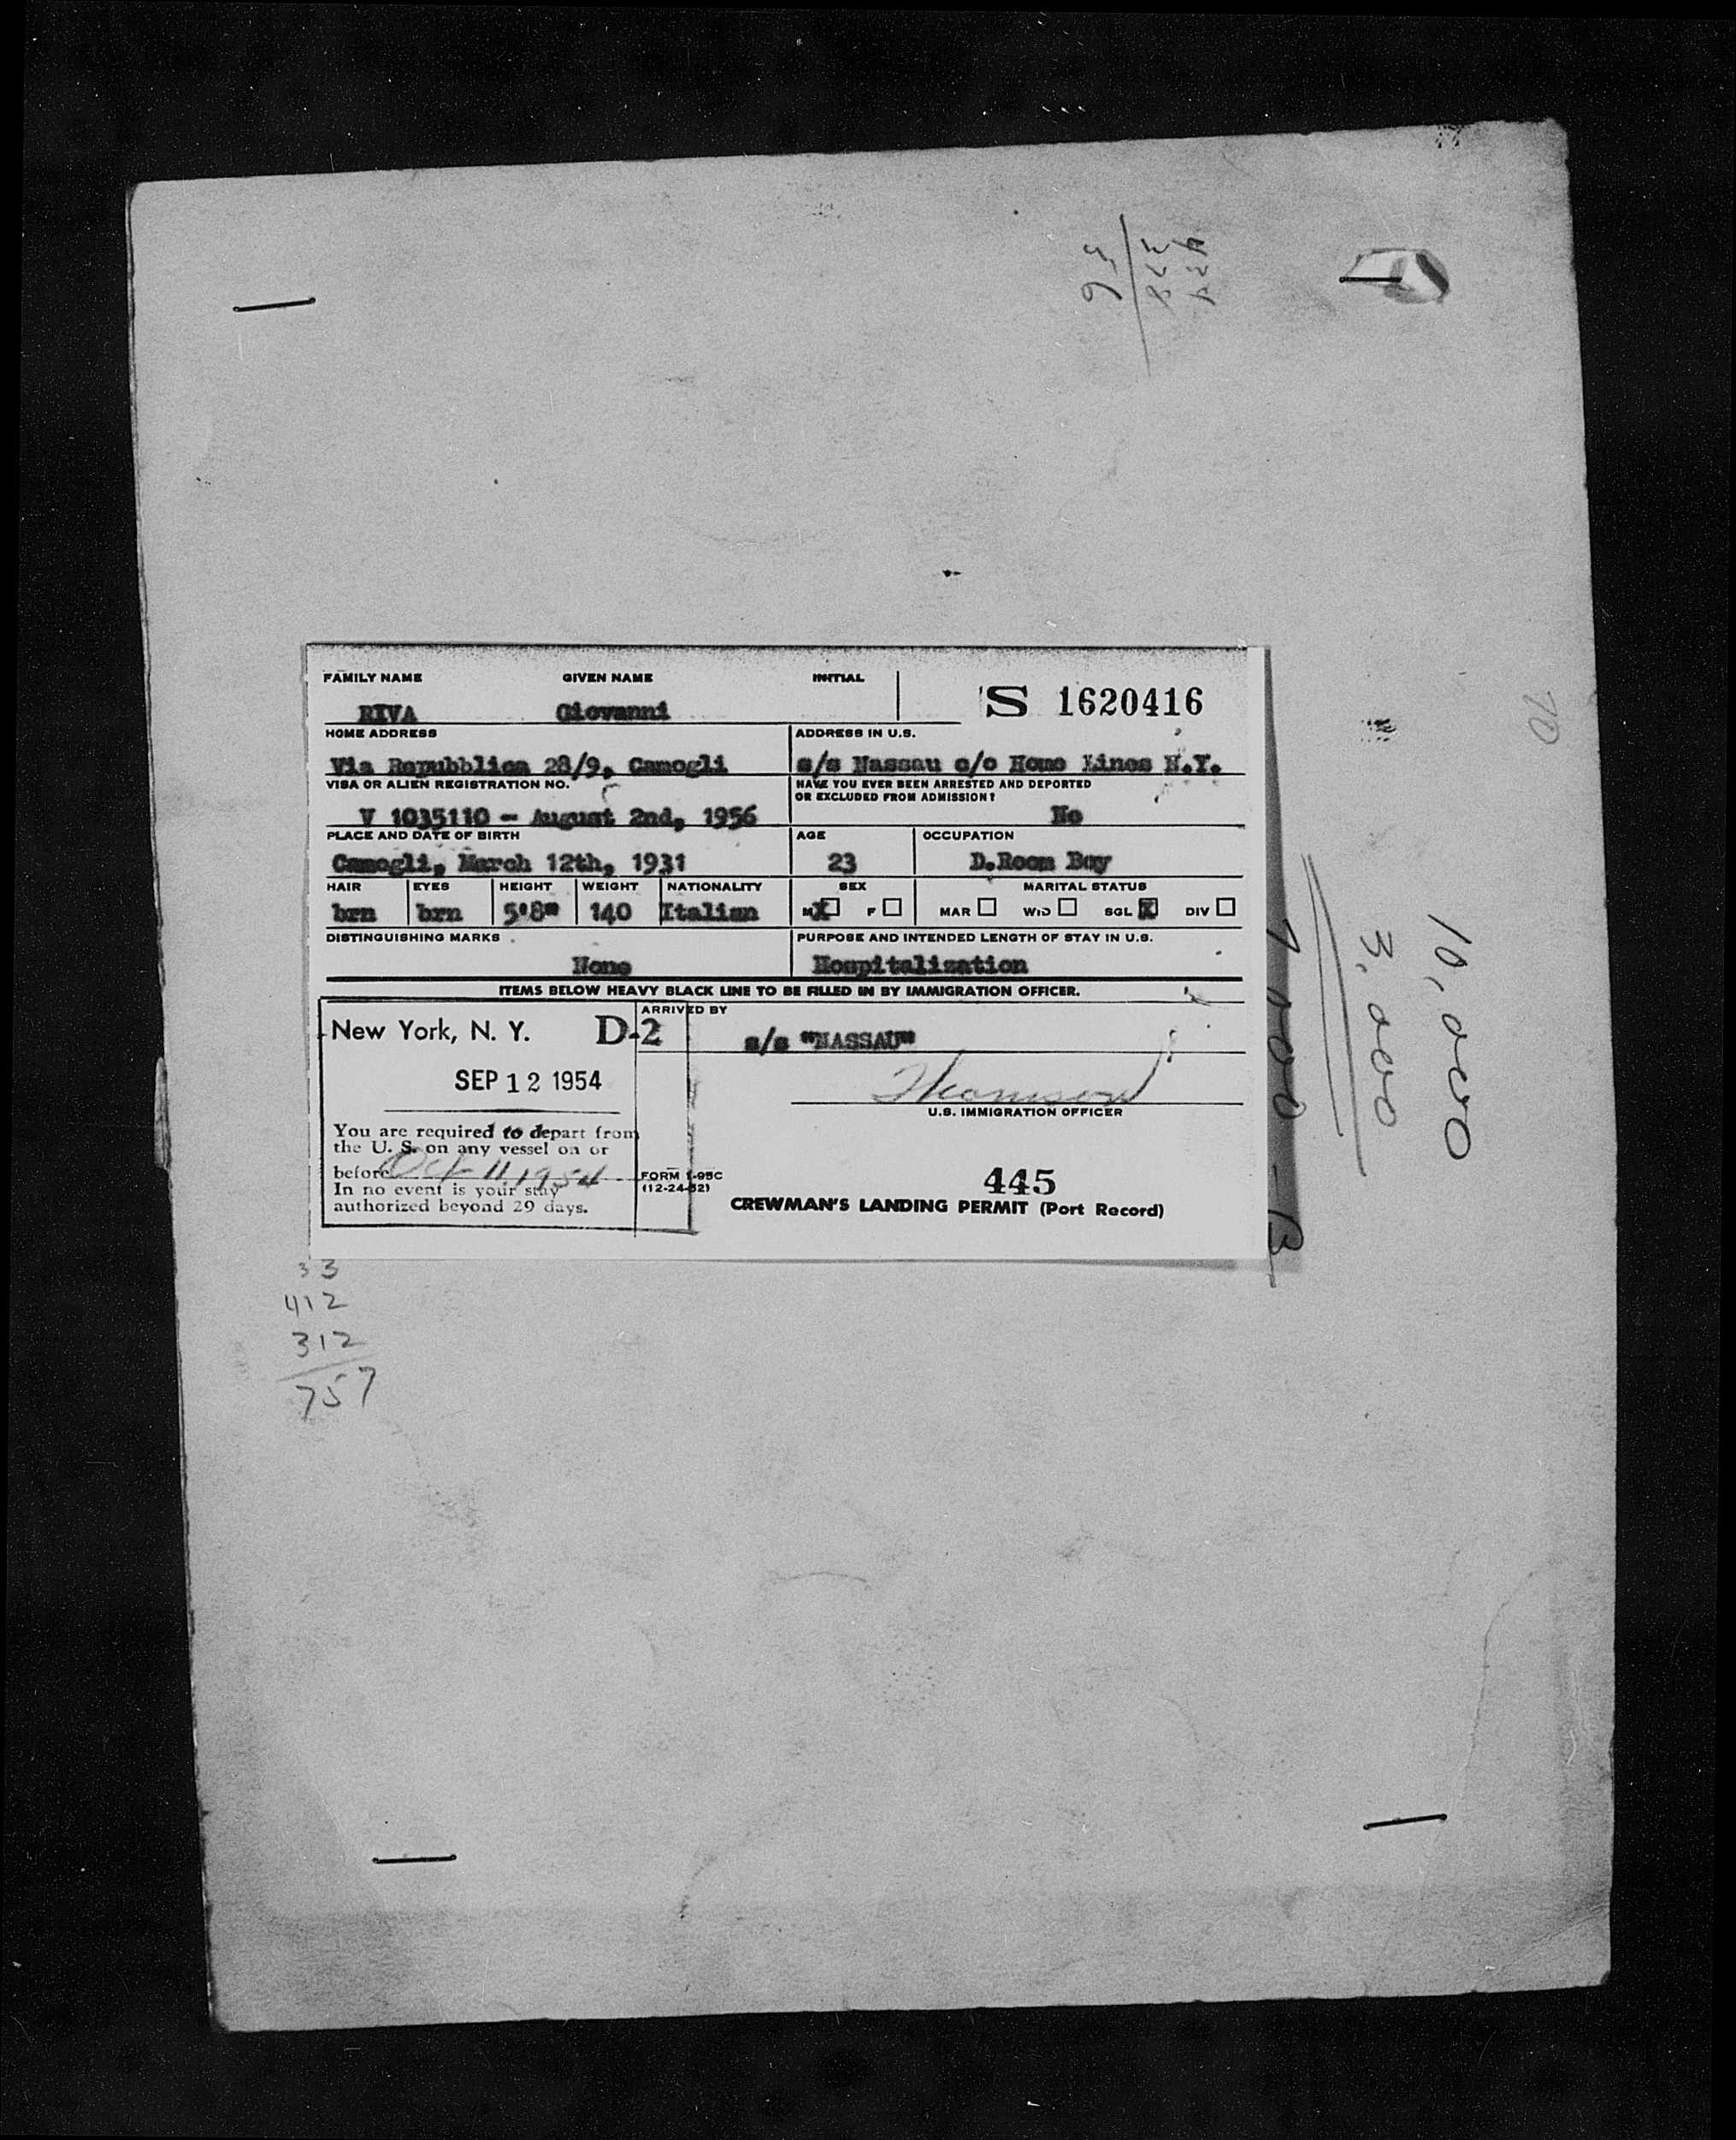 FAMILY NAME GIVEN NAME INITIAL
RIVA Giovanni S 1620416
HOME ADDRESS ADDRESS IN U.S.
Via Repubblica 28/9, Camogli s/s Nassau c/o Home Lines N.Y.
VISA OR ALIEN REGISTRATION NO. HAVE YOU EVER BEEN ARRESTED AND DEPORTED
OR EXCLUDED FROM ADMISSION?
V 1035110 - August 2nd, 1956 No
PLACE AND DATE OF BIRTH AGE OCCUPATION
Camogli, March 12th, 1931 23 D.Room Boy
HAIR EYES HEIGHT WEIGHT NATIONALITY SEX MARITAL STATUS
brn brn 5'8" 140 Italian M X F MAR WID SGL X DIV
DISTINGUISHING MARKS PURPOSE AND INTENDED LENGTH OF STAY IN U.S.
None Hospitalization
ITEMS BELOW HEAVY BLACK LINE TO BE FILLED IN BY IMMIGRATION OFFICER.
ARRIVED BY
New York, N. Y. D-2 s/s "NASSAU"
SEP 12 1954
U.S. IMMIGRATION OFFICER
You are required to depart from
the U. S. on any vessel on or
before Oct 11, 1954
In no event is your stay
authorized beyond 29 days.
FORM I-95C
(12-24-52)
445
CREWMAN'S LANDING PERMIT (Port Record)
33
412
312
757
10,000
3,000
7000
70
434
378
56